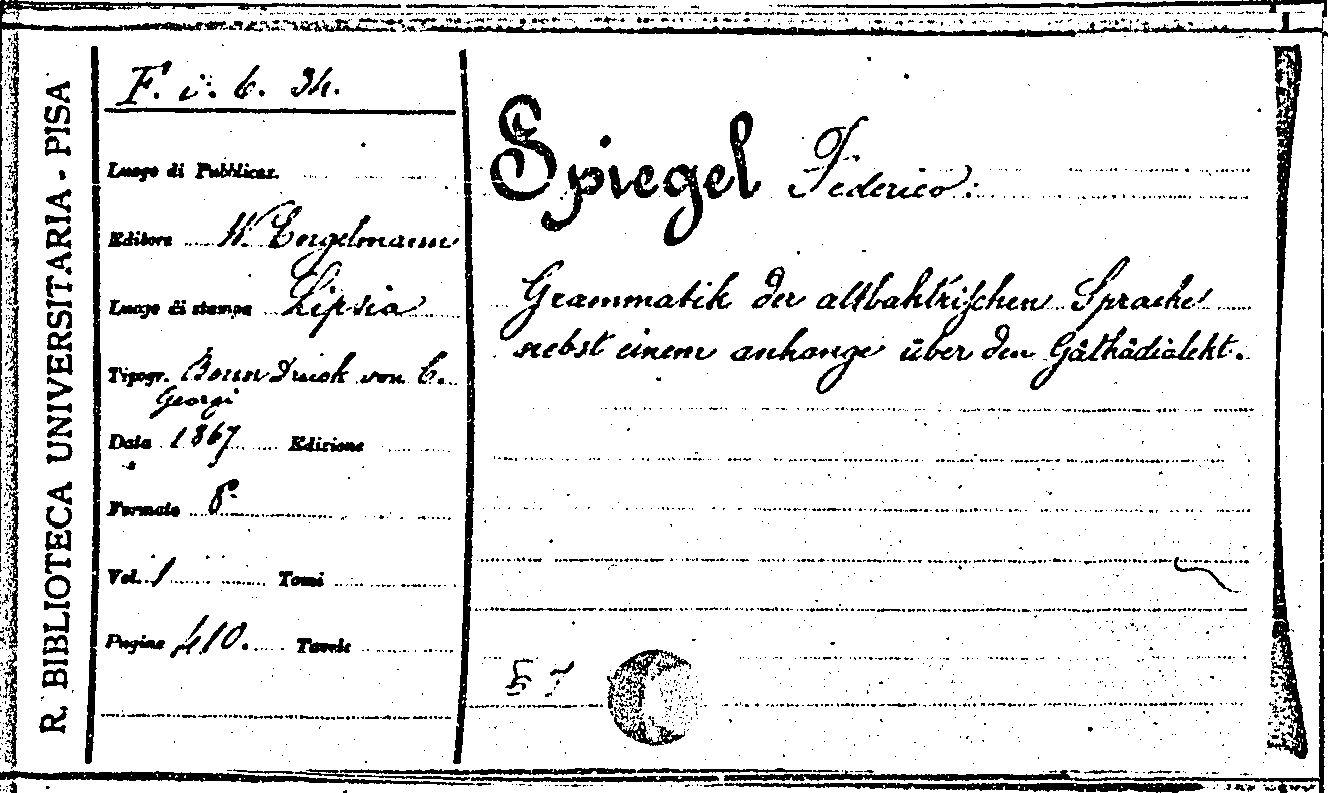 R. BIBLIOTECA UNIVERSITARIA - PISA
F. i. 6. 34.
Luogo di Pubblicaz.
Editore W. Engelmann
Luogo di stampa Lipsia
Tipogr. Bonn Druck von C.
Georgi
Data 1867 Edizione
Formato 8.°
Vol. 1 Tomi
Pagine 410. Tavole
Spiegel Federico:
Grammatik der altbaktrischen Sprache
nebst einem anhange über den Gâthâdialekt.
57